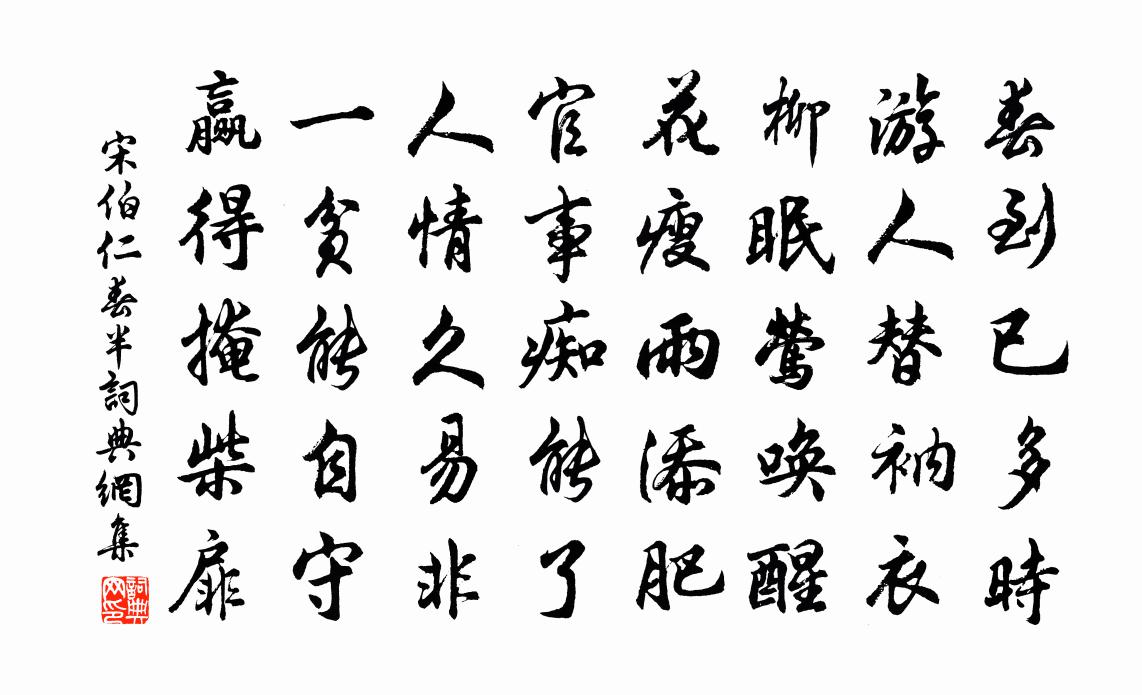 春到已多時
游人替衲衣
柳眠鶯喚醒
花瘦雨添肥
官事痴能了
人情久易非
一貧能自守
贏得掩柴扉
宋伯仁春半詞典網集
詞典网印